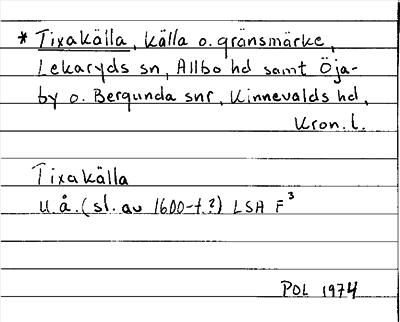 * Tixakälla, källa o. gränsmärke,
Lekaryds sn, Allbo hd samt Öja-
by o. Bergunda snr, Kinnevalds hd,
Kron. l.
Tixakälla
u.å. (sl. av 1600-t.?) LSA F³
POL 1974